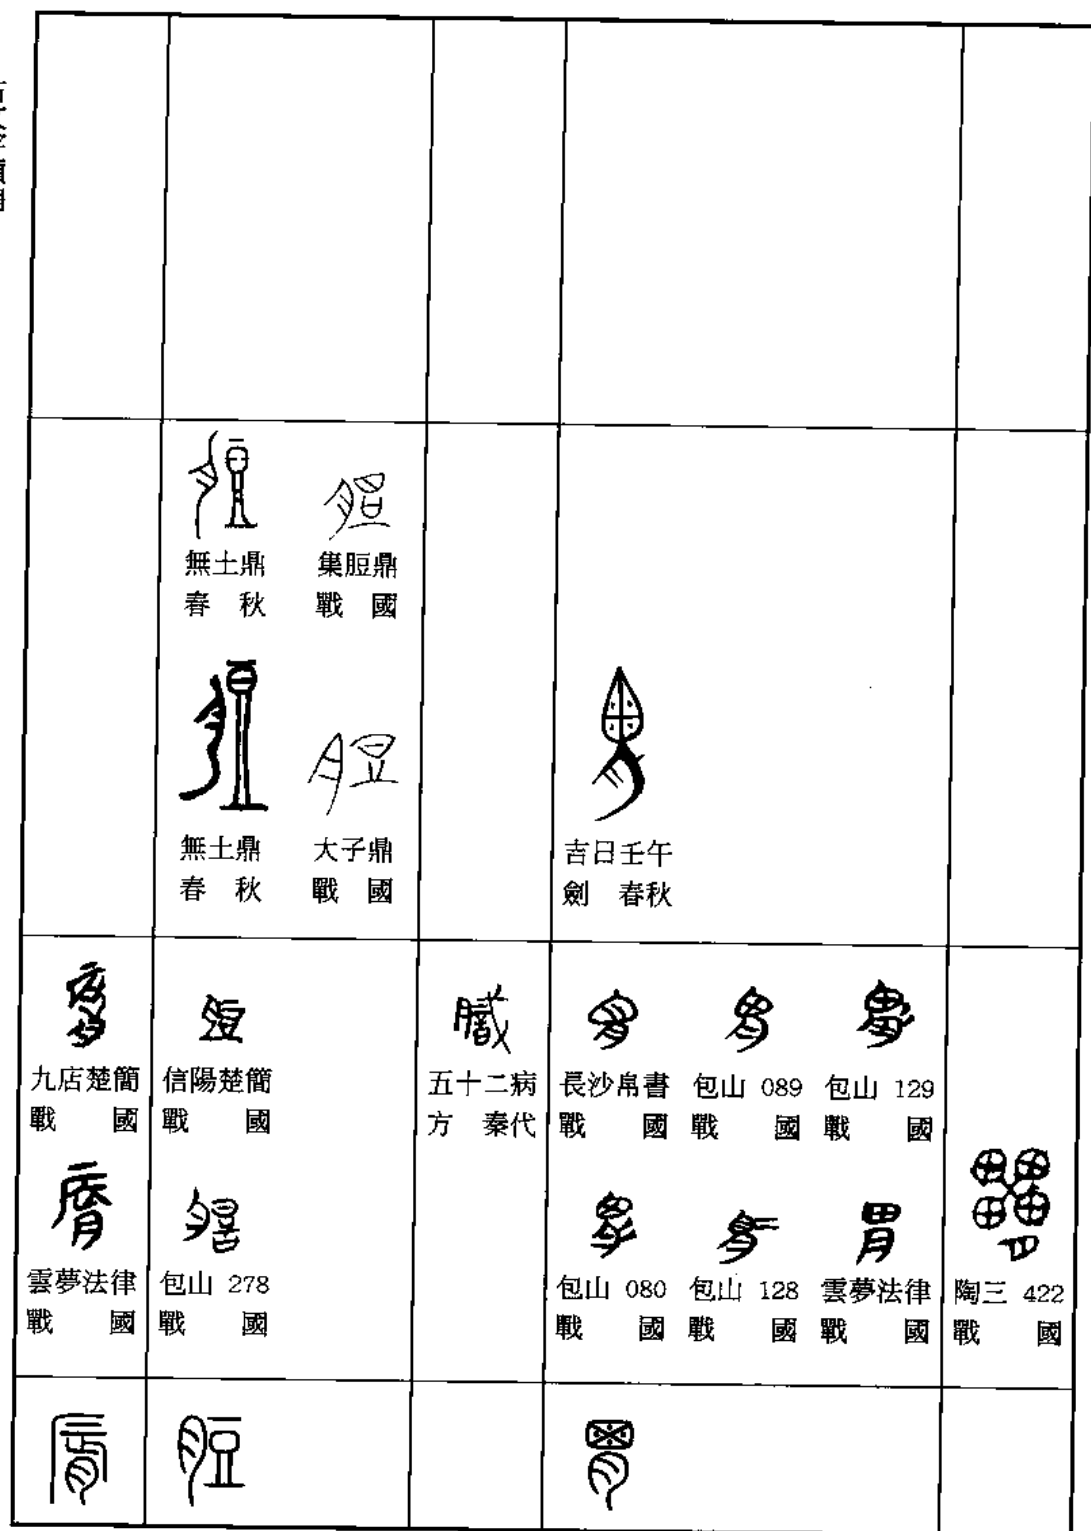 無土鼎
春 秋
集脰鼎
戰 國
無土鼎
春 秋
大子鼎
戰 國
吉日壬午
劍 春秋
九店楚簡
戰 國
信陽楚簡
戰 國
五十二病
方 秦代
長沙帛書
戰 國
包山 089
戰 國
包山 129
戰 國
雲夢法律
戰 國
包山 278
戰 國
包山 080
戰 國
包山 128
戰 國
雲夢法律
戰 國
陶三 422
戰 國